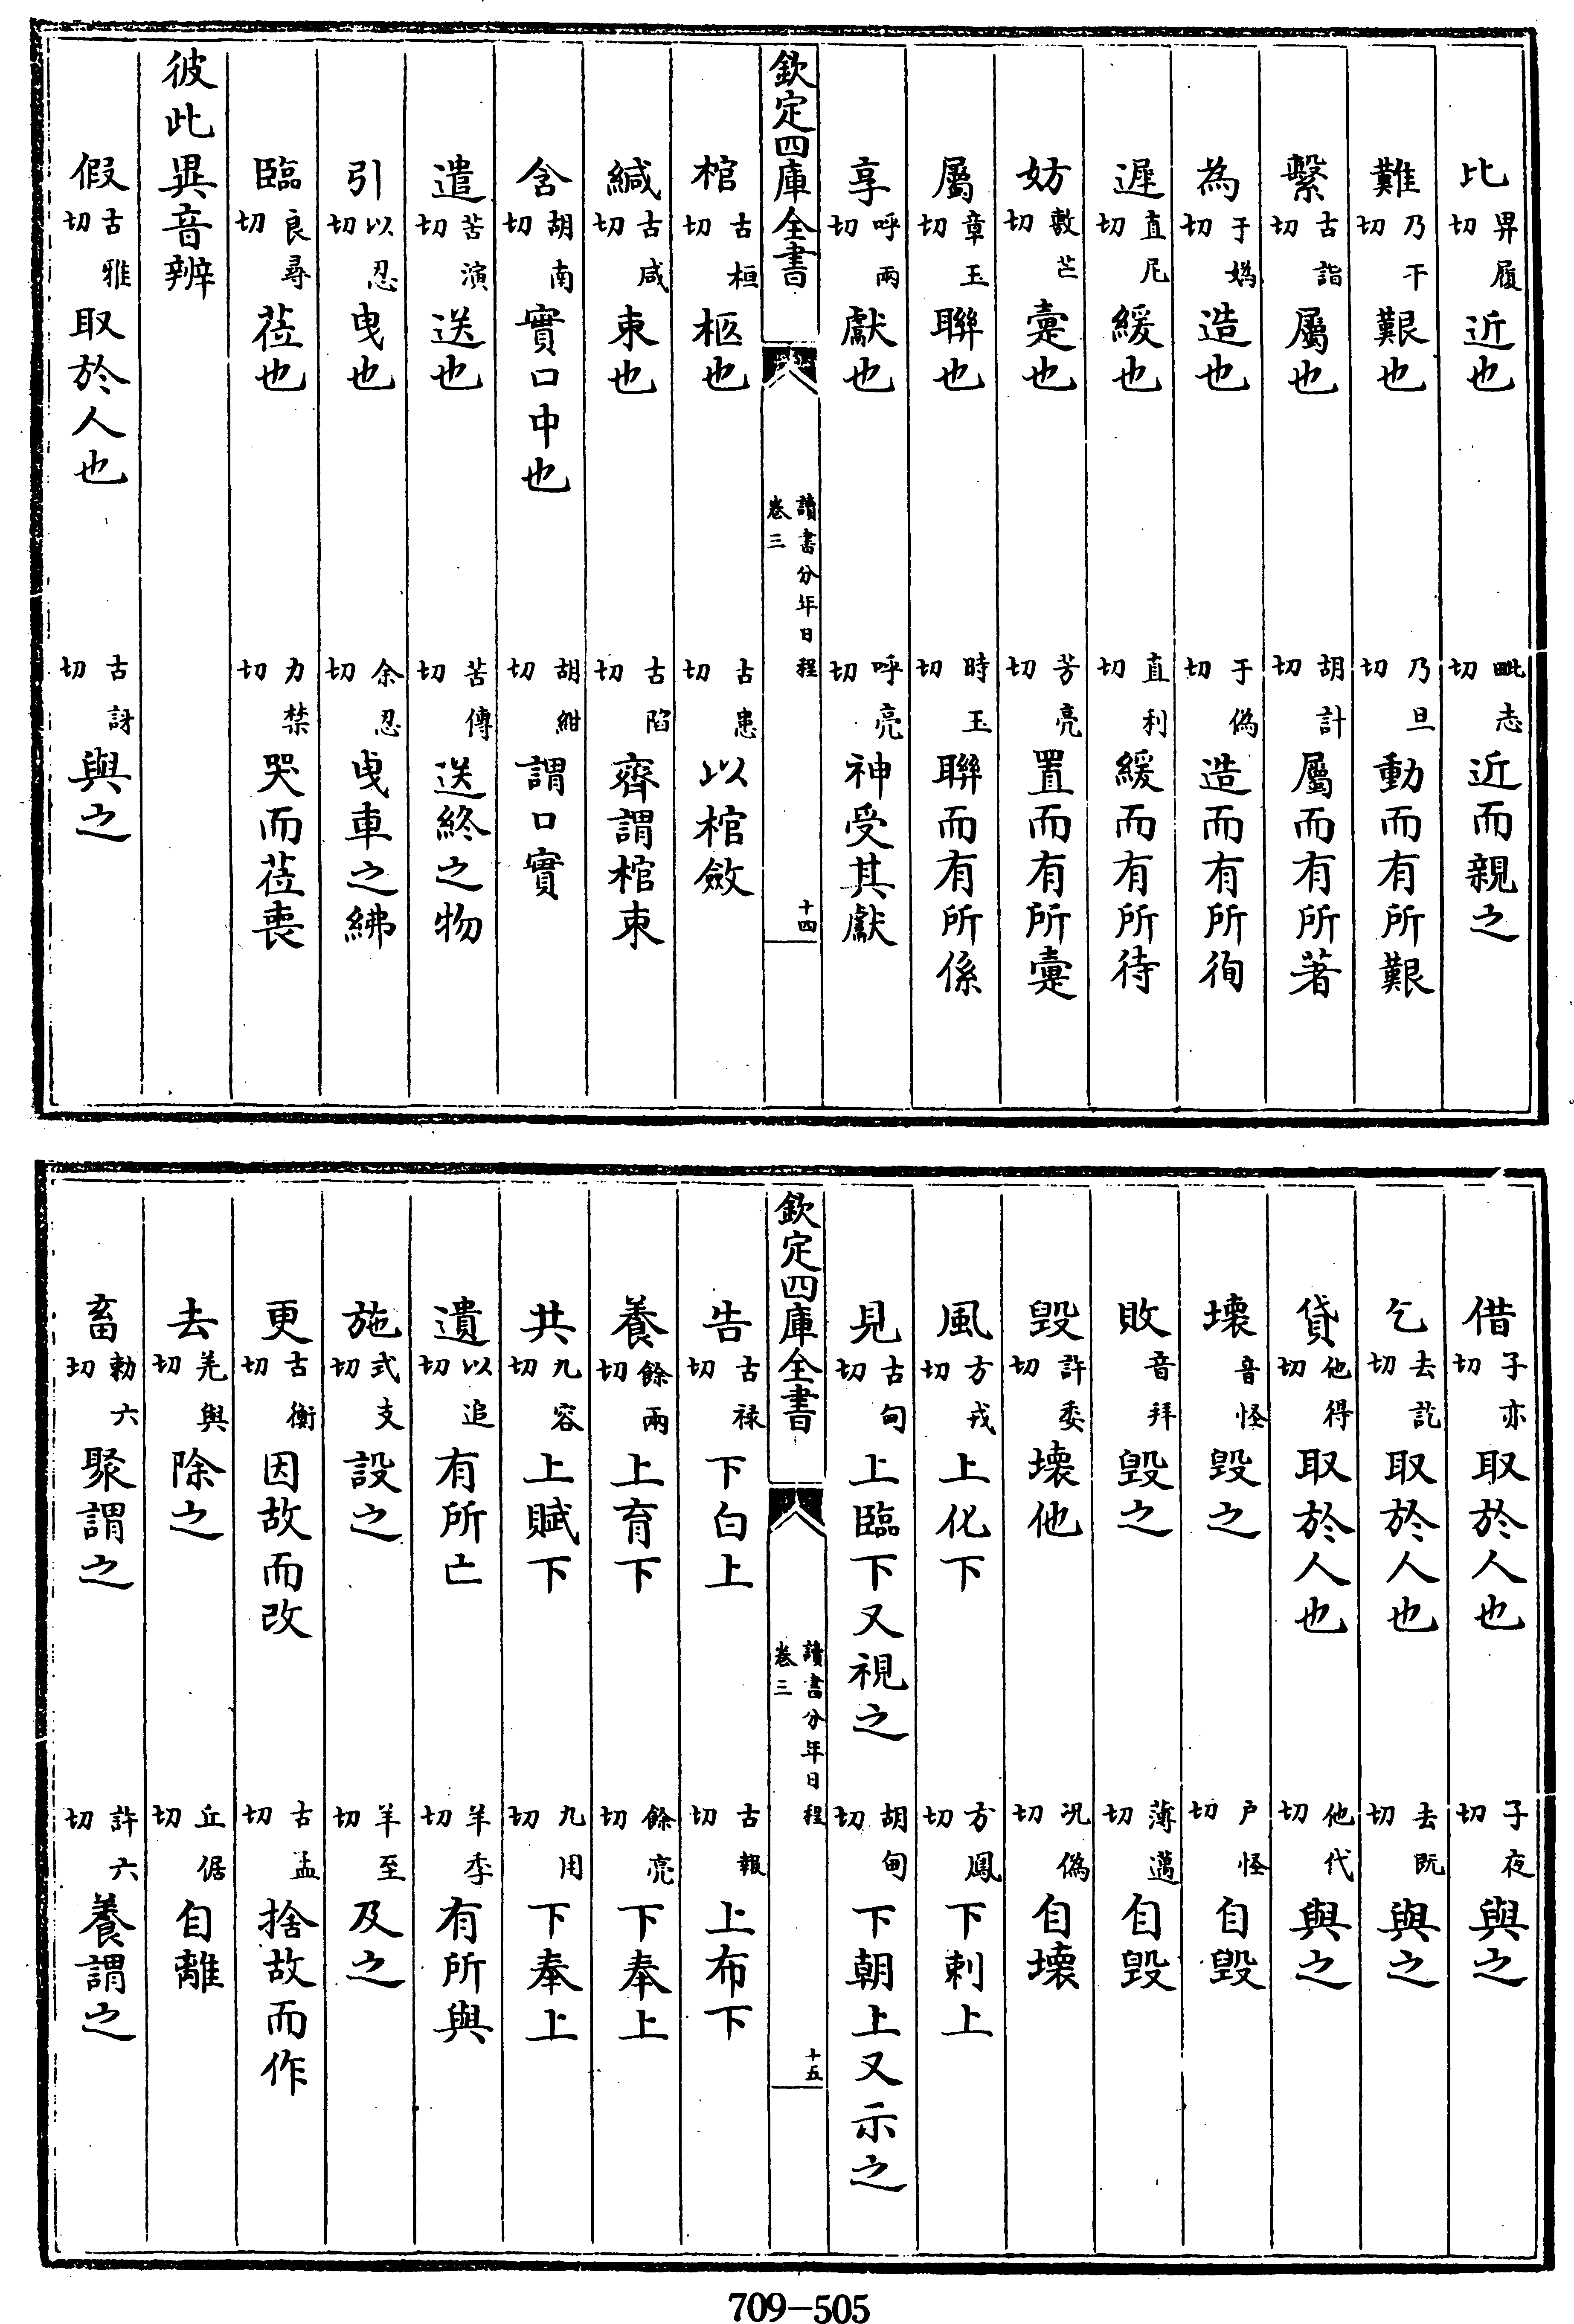 比昇履切近也 毗志切近而親之
難乃干切艱也 乃旦切動而有所艱
繫古詣切屬也 胡計切屬而有所著
為于媯切造也 于偽切造而有所徇
遲直尼切緩也 直利切緩而有所待
妨敷芒切寔也 芳亮切置而有所寔
屬章玉切聯也 時玉切聯而有所係
享呼兩切獻也 呼亮切神受其獻
欽定四庫全書 讀書分年日程卷三 十四
棺古桓切柩也 古患切以棺斂
緘古咸切束也 古陷切齊謂棺束
含胡南切實口中也 胡紺切謂口實
遣苦演切送也 苦傳切送終之物
引以忍切曳也 余忍切曳車之紼
臨良尋切莅也 力禁切哭而莅喪
彼此異音辨
假古雅切取於人也 古訝切與之
借子亦切取於人也 子夜切與之
乞去訖切取於人也 去既切與之
貸他得切取於人也 他代切與之
壞音怪毀之 戶怪切自毀
敗音拜毀之 薄邁切自毀
毀許委切壞他 况偽切自壞
風方戎切上化下 方鳳切下刺上
見古甸切上臨下又視之 胡甸切下朝上又示之
欽定四庫全書 讀書分年日程卷三 十五
告古祿切下白上 古報切上布下
養餘兩切上育下 餘亮切下奉上
共九容切上賦下 九用切下奉上
遺以追切有所亡 羊季切有所與
施式支切設之 羊至切及之
更古衡切因故而改 古孟切捨故而作
去羌與切除之 丘倨切自離
畜勅六切聚謂之 許六切養謂之
709-505